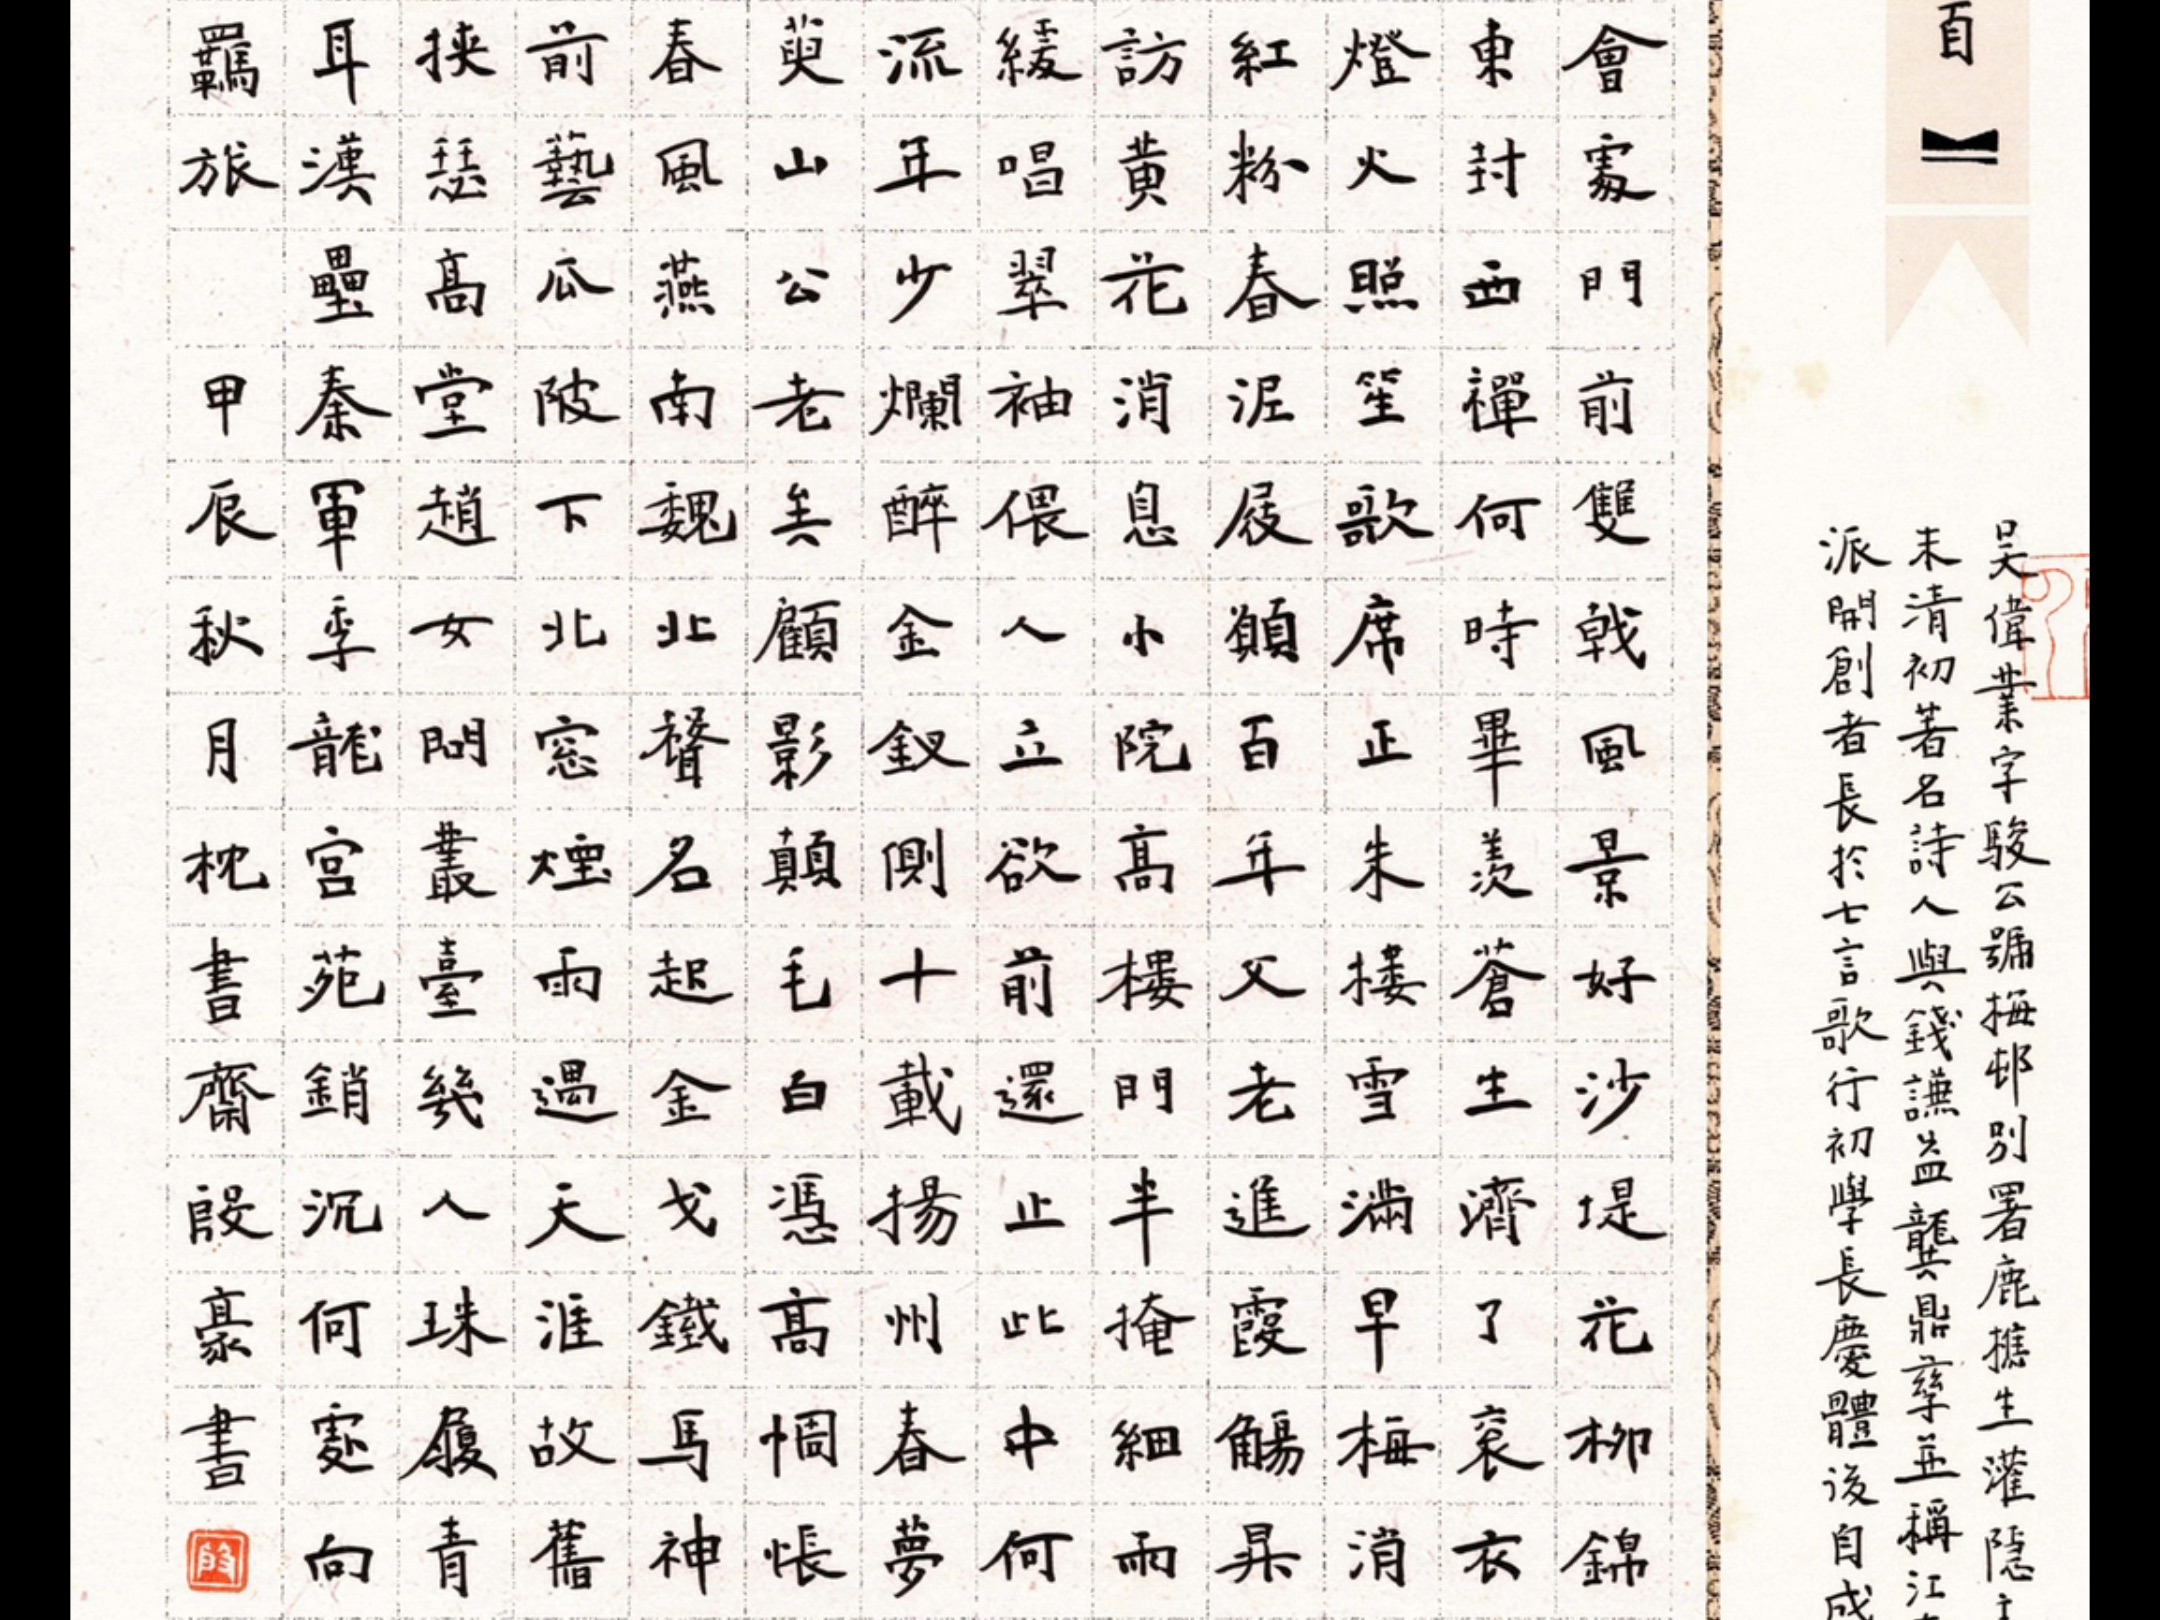 百
吳偉業字駿公號梅邨別署鹿樵生灌隱
末清初著名詩人與錢謙益龔鼎孳並稱江
派開創者長於七言歌行初學長慶體後自成
會處門前雙戟風景好沙堤花柳錦
東封西禪何時畢羨蒼生濟了袞衣
燈火照笙歌席正朱樓雪滿早梅消
紅粉春泥屐願百年父老進霞觴昇
訪黃花消息小院高樓門半掩細雨
緩唱翠袖偎人立欲前還止此中何
流年少爛醉金釵側十載揚州春夢
萸山公老矣顧影顛毛白憑高惆悵
春風燕南魏北聲名起金戈鐵馬神
前藝瓜陂下北窓煙雨過天涯故舊
挾瑟高堂趙女問叢臺幾人珠履青
耳漢壘秦軍季龍宮苑銷沉何處向
羈旅 甲辰秋月枕書齋段豪書